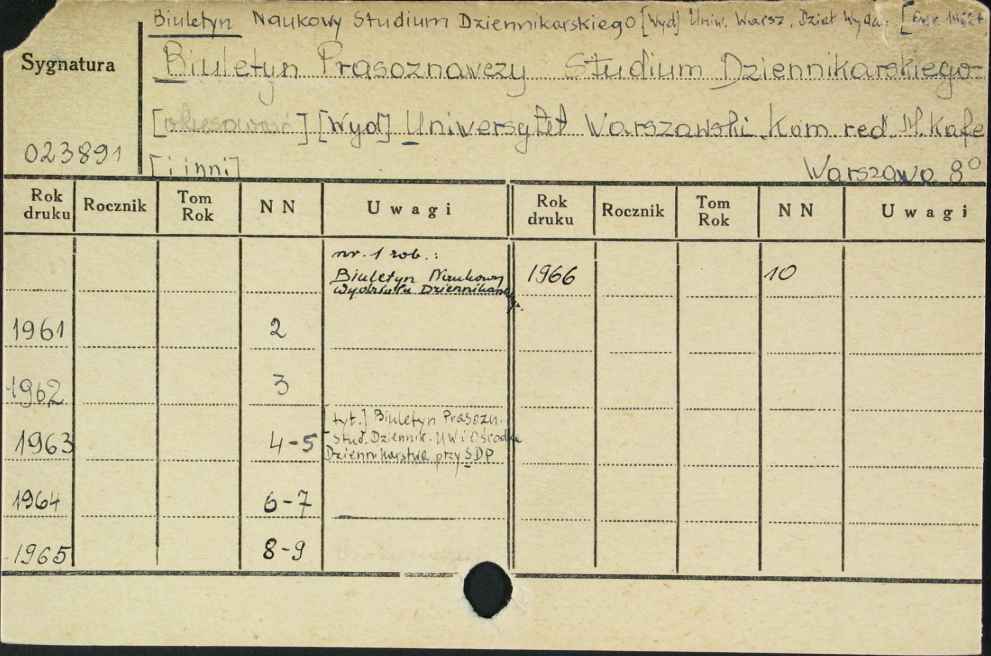 Biuletyn Naukowy Studium Dziennikarskiego [Wyd] Uniw. Warsz. Dział Wyda.
Sygnatura
Biuletyn Prasoznawczy Studium Dziennikarskiego
[Wyd] Uniwersytet Warszawski Kom red. M. Kafe
023891
[i inni] Warszawa 8°
Rok druku Rocznik Tom Rok N N Uwagi Rok druku Rocznik Tom Rok N N Uwagi
nr. 1 rob.:
Biuletyn Naukowy
1966 10
1961 2
1962 3
tyt.] Biuletyn Prasozn.
1963 4-5 Stud. Dziennik. UW i Ośrodka
Dziennikarstwa przy SDP
1964 6-7
1965 8-9